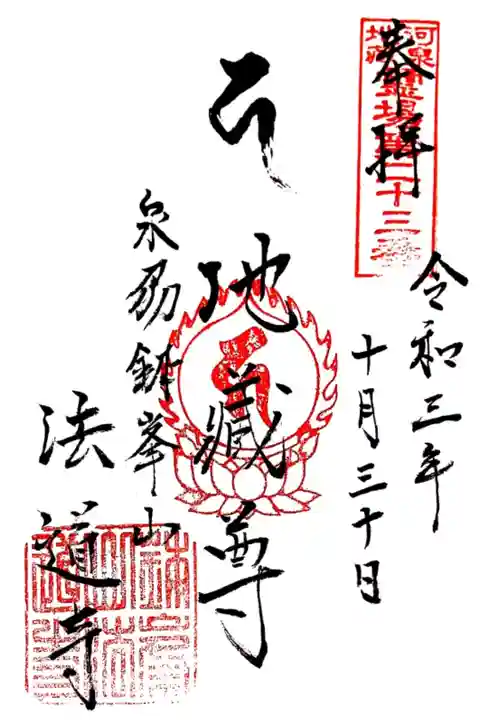 奉拝
河泉
地蔵
霊場第二十三番
令和三年
十月三十日
地蔵尊
泉刕鉢峯山
法道寺